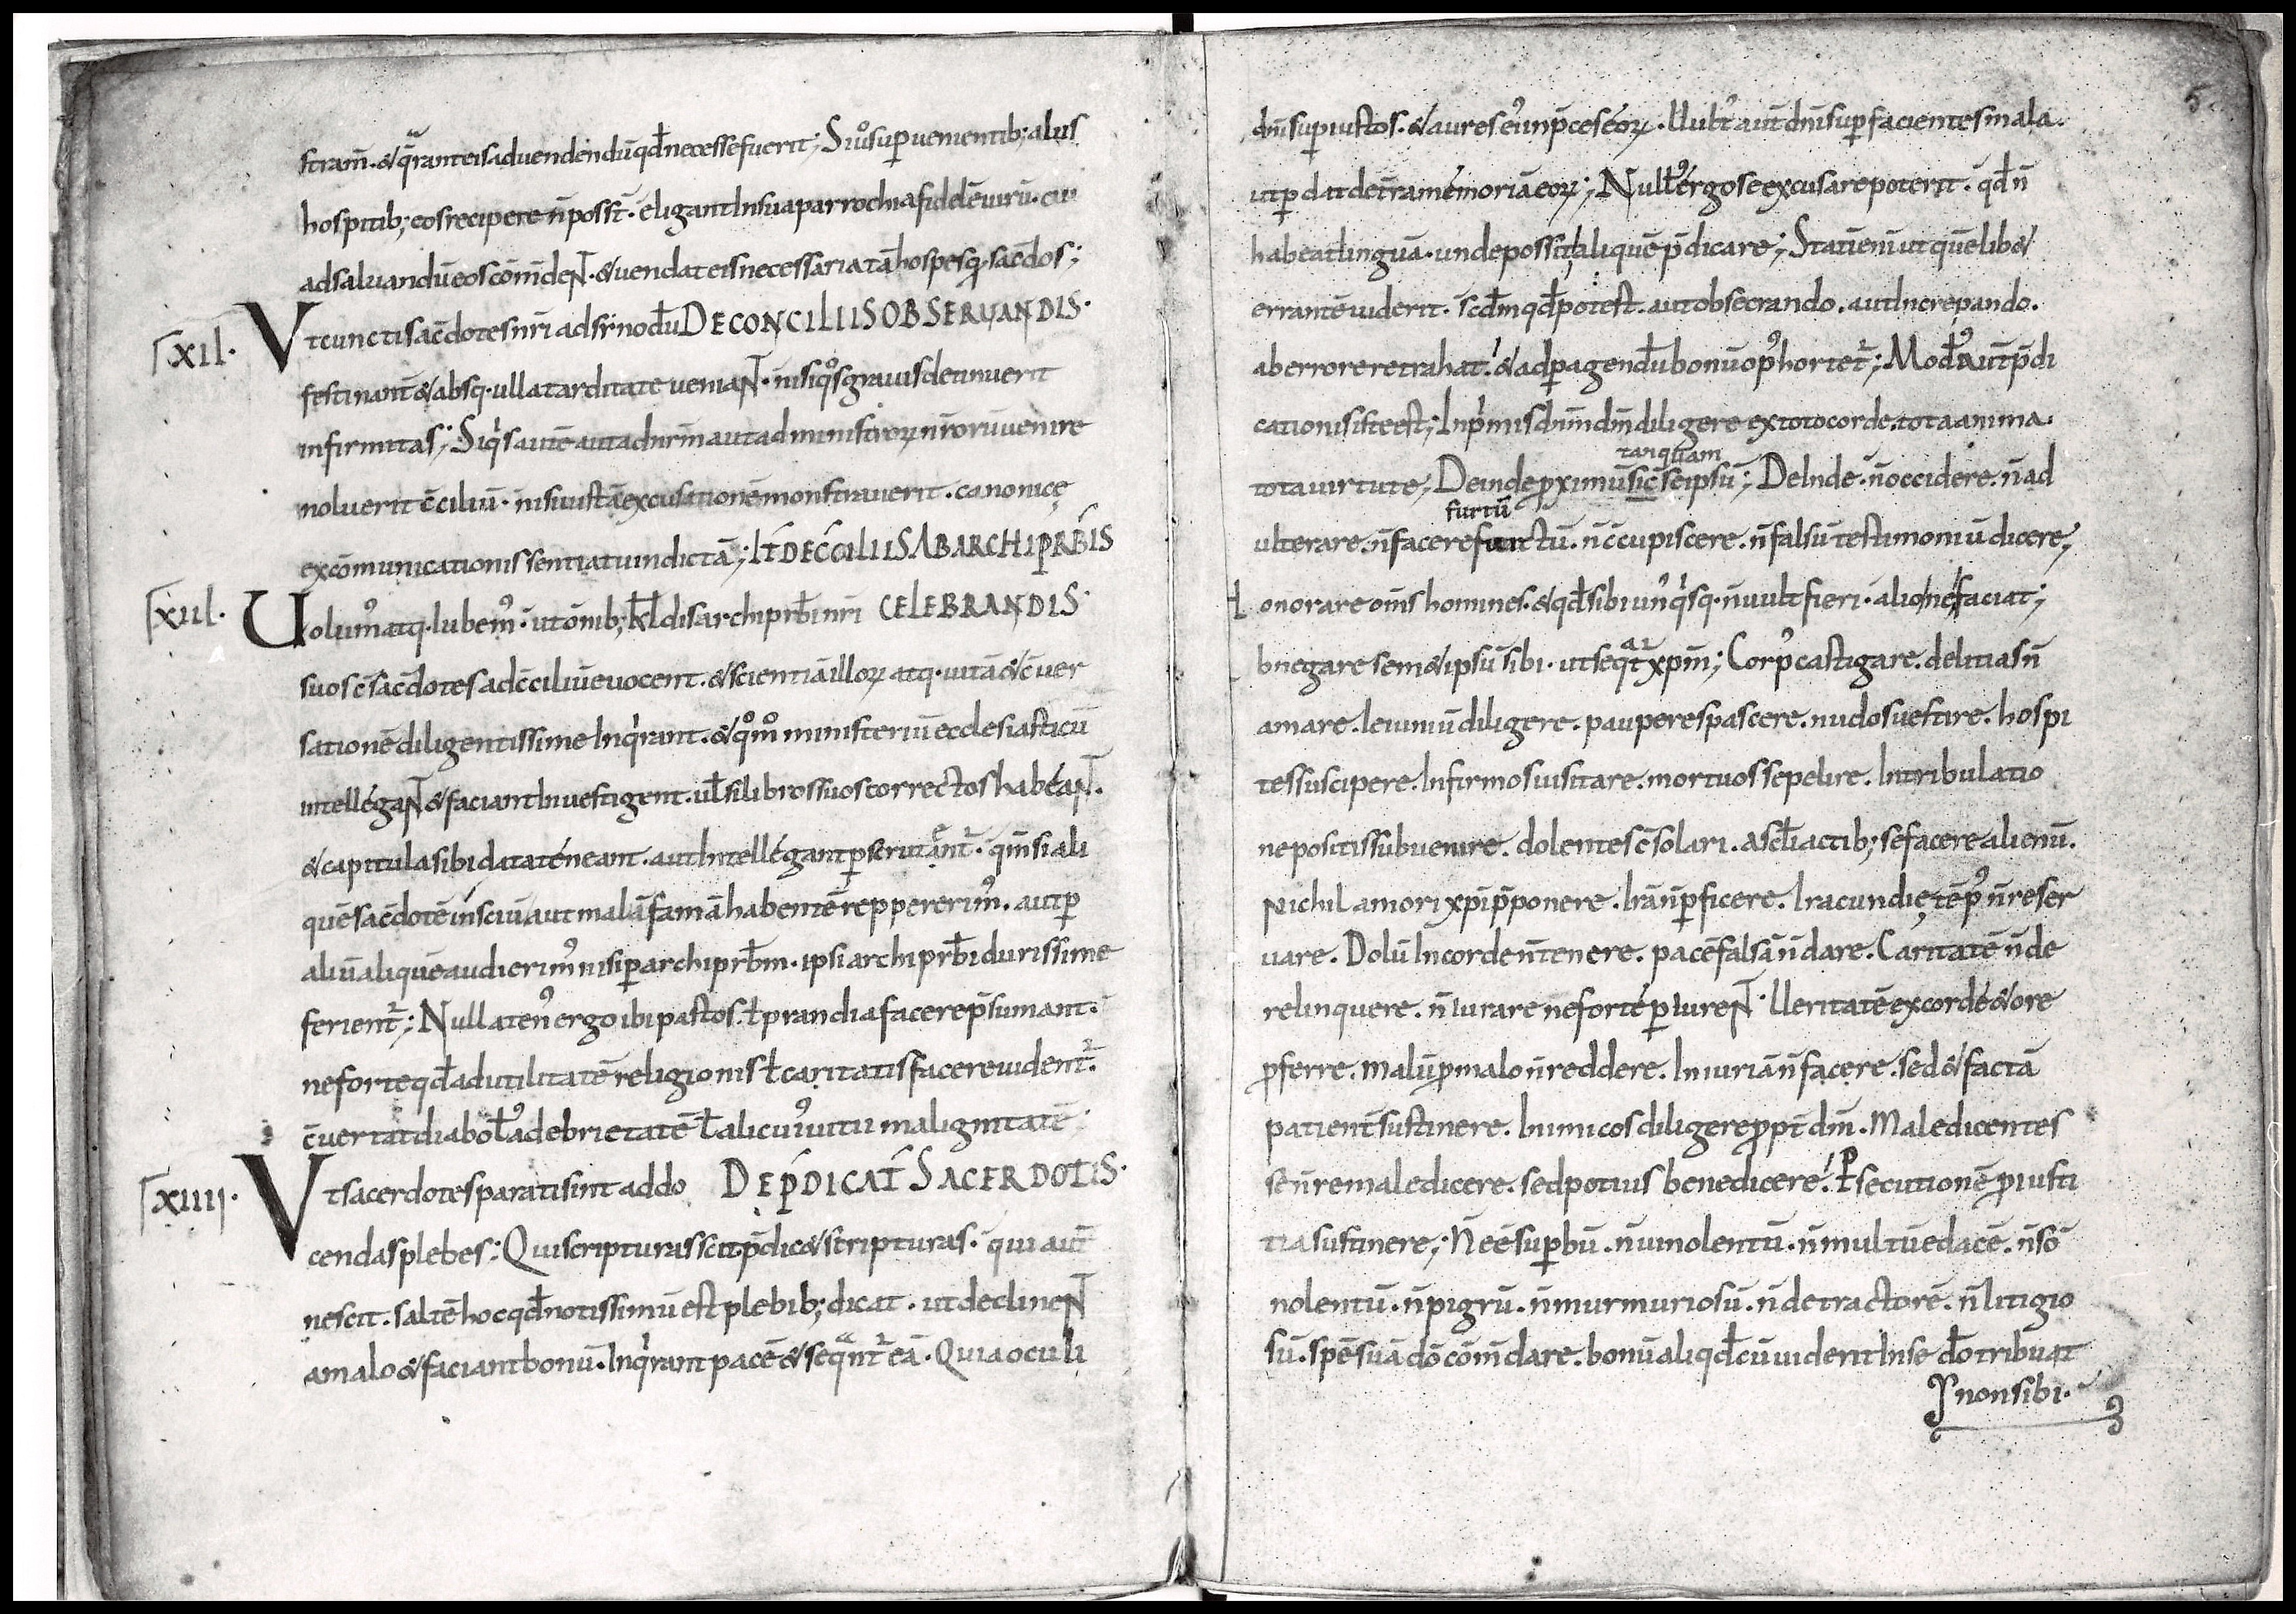 stram̄. & q̄ranteisaduendendū qđ necesse fuerit; Siuͦ suꝑuenientib; aliis
hospitib; eos recipere n̄ possT̄. eligant In sua parrochia fidelē uirū. cui
ad saluandū eos com̄deNT. & uendat eis necessaria tā hospes qᵃ saćdos;
ꞅXII. Vt cuncti saćdotes nr̄i ad sr̄ nodū DE CONCILIIS OBSERUANDIS.
festinant̄ & absq. ulla tarditate ueniaNT. nisi qͦs grauis detinuerit
infirmitas; Siqͥs autē aut ad nr̄m aut ad ministroꝝ nr̄orū uenire
noluerit c̄ciliū. nisi iustā excusationē monstrauerit. canonicę
excōmunicationis sentiat uindictā; IT́ DE C̄CILIIS AB ARCHIPRB̄IS
ꞅXIII. Uolum᾿ atq. Iubem᾿. ut ōnib; kl̄dis archiprb̄i nr̄i CELEBRANDIS.
suos c̄sac̄dotes ad c̄ciliū euocent. & scientiā illoꝝ atq. uitā & c̄uer
sationē diligentissime Inqͥrant. & qͦmͦ ministeriū ecclesiasticū
intellégaNT & faciant Inuestigent. ul̄ si libros suos correctos habeaNT.
& capitula sibi data téneant. aut Intellégant ꝑscrutęnt̄. qm̄ si ali
quē sac̄dotē insciū aut malā famā habentē reppererim᾿. aut ꝑ
aliū aliquē audierim᾿ nisi ꝑ archiprb̄m. ipsi archiprb̄i durissime
ferient̄; Nullaten᾿ ergo ibi pastos. ł prandia facere p̄sumant.
ne forte qđ ad utilitatē religionis ł caritatis facere uident̄.
c̄uertat diabol᾿ ad ebrietatē ł alicui᾿ uitii malignitatē.
ꞅXIIII. Vt sacerdotes parati sint addo DE P̄DICAT̄ SACERDOTIS.
cendas plebes; Qui scripturas scit p̄dic& scripturas. qui aut̄
nescit. saltē hoc qđ notissimū est plebib; dicat. ut declineNT
a malo & faciant bonū. Inqͥrant pacē & seqᵃnt̄ eā. Quia oculi
dn̄i suꝑ iustos. & aures ei᾿ in p̄ces eoꝝ. Uult᾿ aut̄ dn̄i suꝑ facientes mala.
ut ꝑdat de tr̄a mémoriā eoꝝ; Null᾿ érgo se excusare poterit. qđ n̄
habeat linguā. unde possit aliquē p̄dicare; Statī enī ut quēlib&
errantē uiderit. sc̄dm qđ potest. aut obsecrando. aut Increpando.
ab errore retrahat. & ad ꝑagendū bonū op᾿ hortet̄; Mod᾿ aut̄ p̄di
cationis iste est; In pͥmis dn̄m dm̄ diligere ex toto corde. tota anima.
tanquam
tota uirtute; Deinde ꝓximū sic seipsū; DeInde. n̄ occidere. n̄ ad
furtū
ulterare. n̄ facere furtū. n̄ c̄cupiscere. n̄ falsū testimoniū dicere;
H onorare om̄s homines. & qđ sibi un᾿qͥsq. n̄ uult fieri. alio ne faciat;
bnegare sem&ipsū sibi. ut seqᵃt̄ xpm̄; Corp᾿ castigare. delitias n̄
amare. Ieiuniū diligere. pauperes pascere. nudos uestire. hospi
tes suscipere. Infirmos uisitare. mortuos sepelire. In tribulatio
ne positis subuenire. dolentes c̄solari. a scl̄i actib; se facere alienū.
Nichil amori xpi p̄ponere. Irā n̄ ꝑficere. Iracundię tēp᾿ n̄ reser
uare. Dolū In corde n̄ tenere. pacē falsā n̄ dare. Caritatē n̄ de
relinquere. n̄ Iurare ne forté ꝑIureNT. Ueritatē ex cordé & ore
ꝓferre. malū ꝓ malo n̄ reddere. Iniuriā n̄ facere. sed & factā
patient̄ sustinere. Inimicos diligere ꝓpt̄ dm̄. Maledicentes
se n̄ remaledicere. sed potius benedicere. Ꝑsecutionē ꝓ iusti
tia sustinere; N̄ eē suꝑbū. n̄ uinolentū. n̄ multū edacē. n̄ so
nolentū. n̄ pigrū. n̄ murmuriosū. n̄ detractorē. n̄ litigio
sū. spē suā dō com̄dare. bonū aliqđ cū uiderit In se dō tribuat
non sibi.